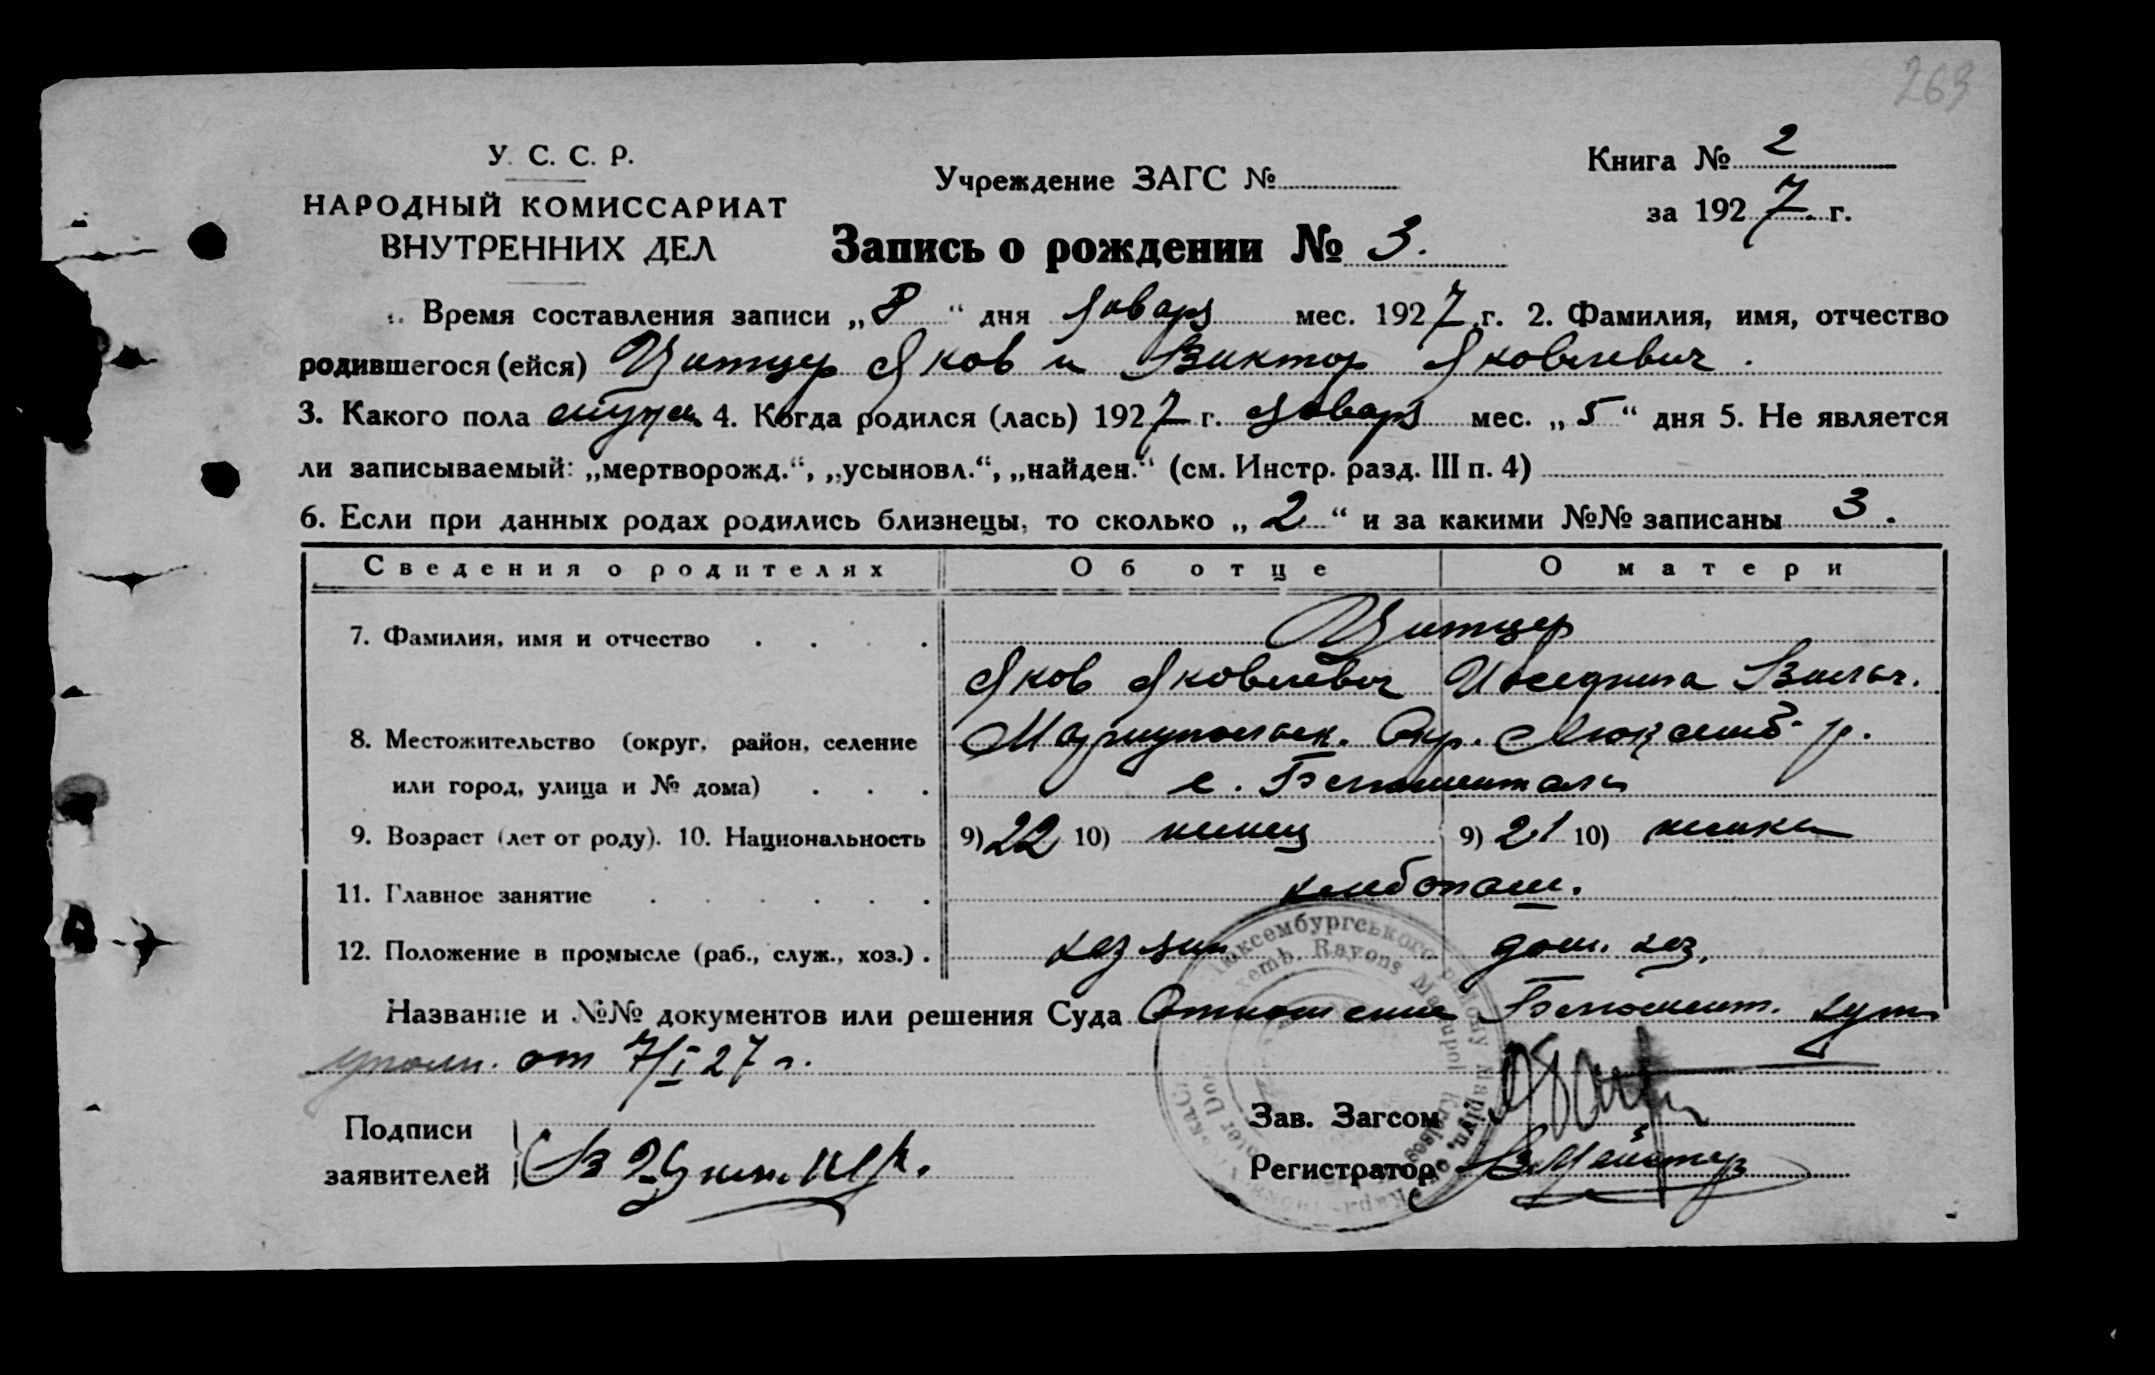 263
У. С. С. Р.
НАРОДНЫЙ КОМИССАРИАТ
ВНУТРЕННИХ ДЕЛ
Учреждение ЗАГС №
Книга № 2
за 1927 г.
Запись о рождении № 3.
Время составления записи „8“ дня январь мес. 1927 г. 2. Фамилия, имя, отчество
родившегося (ейся) Цитцер Яков и Виктор Яковлевич.
3. Какого пола 4. Когда родился (лась) 1927 г. январь мес. „5“ дня 5. Не является
ли записываемый: „мертворожд.“, „усыновл.“, „найден.“ (см. Инстр. разд. III п. 4)
6. Если при данных родах родились близнецы, то сколько „2“ и за какими №№ записаны 3.
Сведения о родителях Об отце О матери
7. Фамилия, имя и отчество Цитцер
Яков Яковлевич
8. Местожительство (округ, район, селение Мариупольск. Окр. Люксемб. р.
или город, улица и № дома) с.
9. Возраст (лет от роду). 10. Национальность 9) 22 10) немец 9) 21 10) немка
11. Главное занятие хлебопаш.
12. Положение в промысле (раб., служ., хоз.) хозяин дом. хоз.
Название и №№ документов или решения Суда Отношение
от 7/I 27 г.
Подписи
заявителей
Зав. Загсом
Регистратор
Люксембургського району Маріуп.
Rayons Mariupol